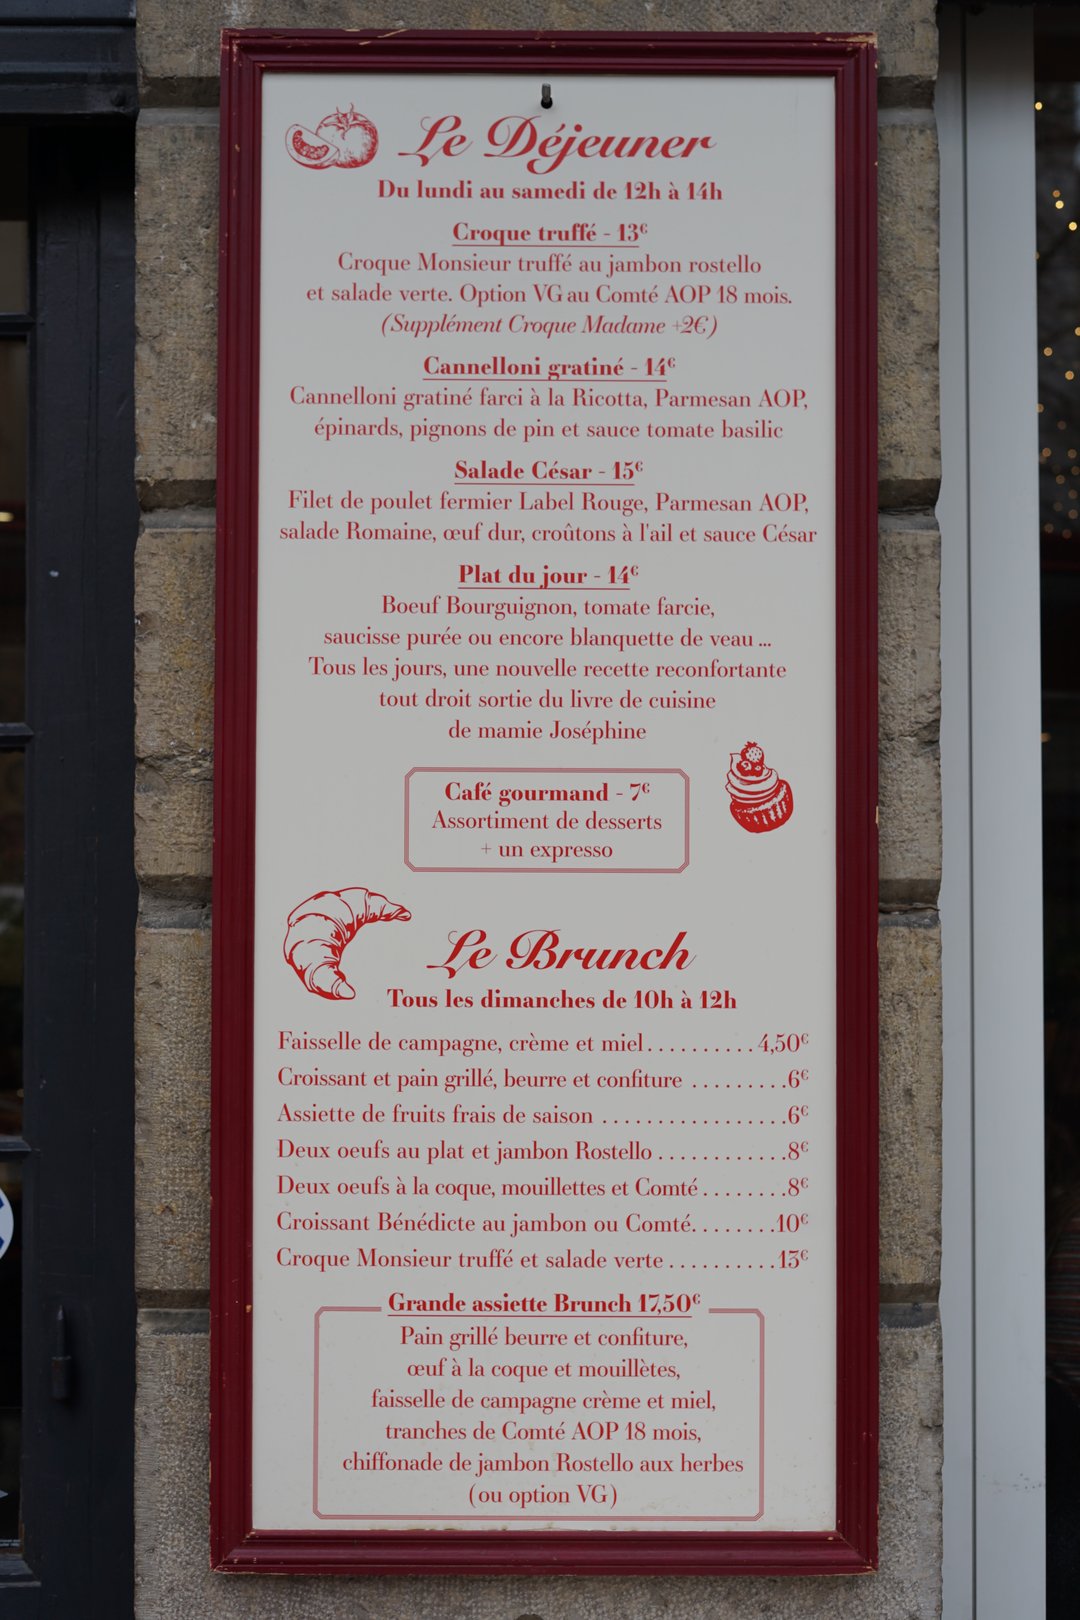 Le Déjeuner
Du lundi au samedi de 12h à 14h
Croque truffé - 13€
Croque Monsieur truffé au jambon rostello
et salade verte. Option VG au Comté AOP 18 mois.
(Supplément Croque Madame +2€)
Cannelloni gratiné - 14€
Cannelloni gratiné farci à la Ricotta, Parmesan AOP,
épinards, pignons de pin et sauce tomate basilic
Salade César - 15€
Filet de poulet fermier Label Rouge, Parmesan AOP,
salade Romaine, œuf dur, croûtons à l'ail et sauce César
Plat du jour - 14€
Boeuf Bourguignon, tomate farcie,
saucisse purée ou encore blanquette de veau ...
Tous les jours, une nouvelle recette reconfortante
tout droit sortie du livre de cuisine
de mamie Joséphine
Café gourmand - 7€
Assortiment de desserts
+ un expresso
Le Brunch
Tous les dimanches de 10h à 12h
Faisselle de campagne, crème et miel..........4,50€
Croissant et pain grillé, beurre et confiture .........6€
Assiette de fruits frais de saison .................6€
Deux oeufs au plat et jambon Rostello ............8€
Deux oeufs à la coque, mouillettes et Comté........8€
Croissant Bénédicte au jambon ou Comté........10€
Croque Monsieur truffé et salade verte..........13€
Grande assiette Brunch 17,50€
Pain grillé beurre et confiture,
œuf à la coque et mouillètes,
faisselle de campagne crème et miel,
tranches de Comté AOP 18 mois,
chiffonade de jambon Rostello aux herbes
(ou option VG)